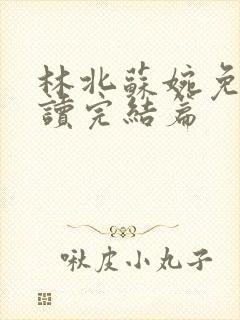 林北蘇婉免
讀完結篇
啾皮小丸子